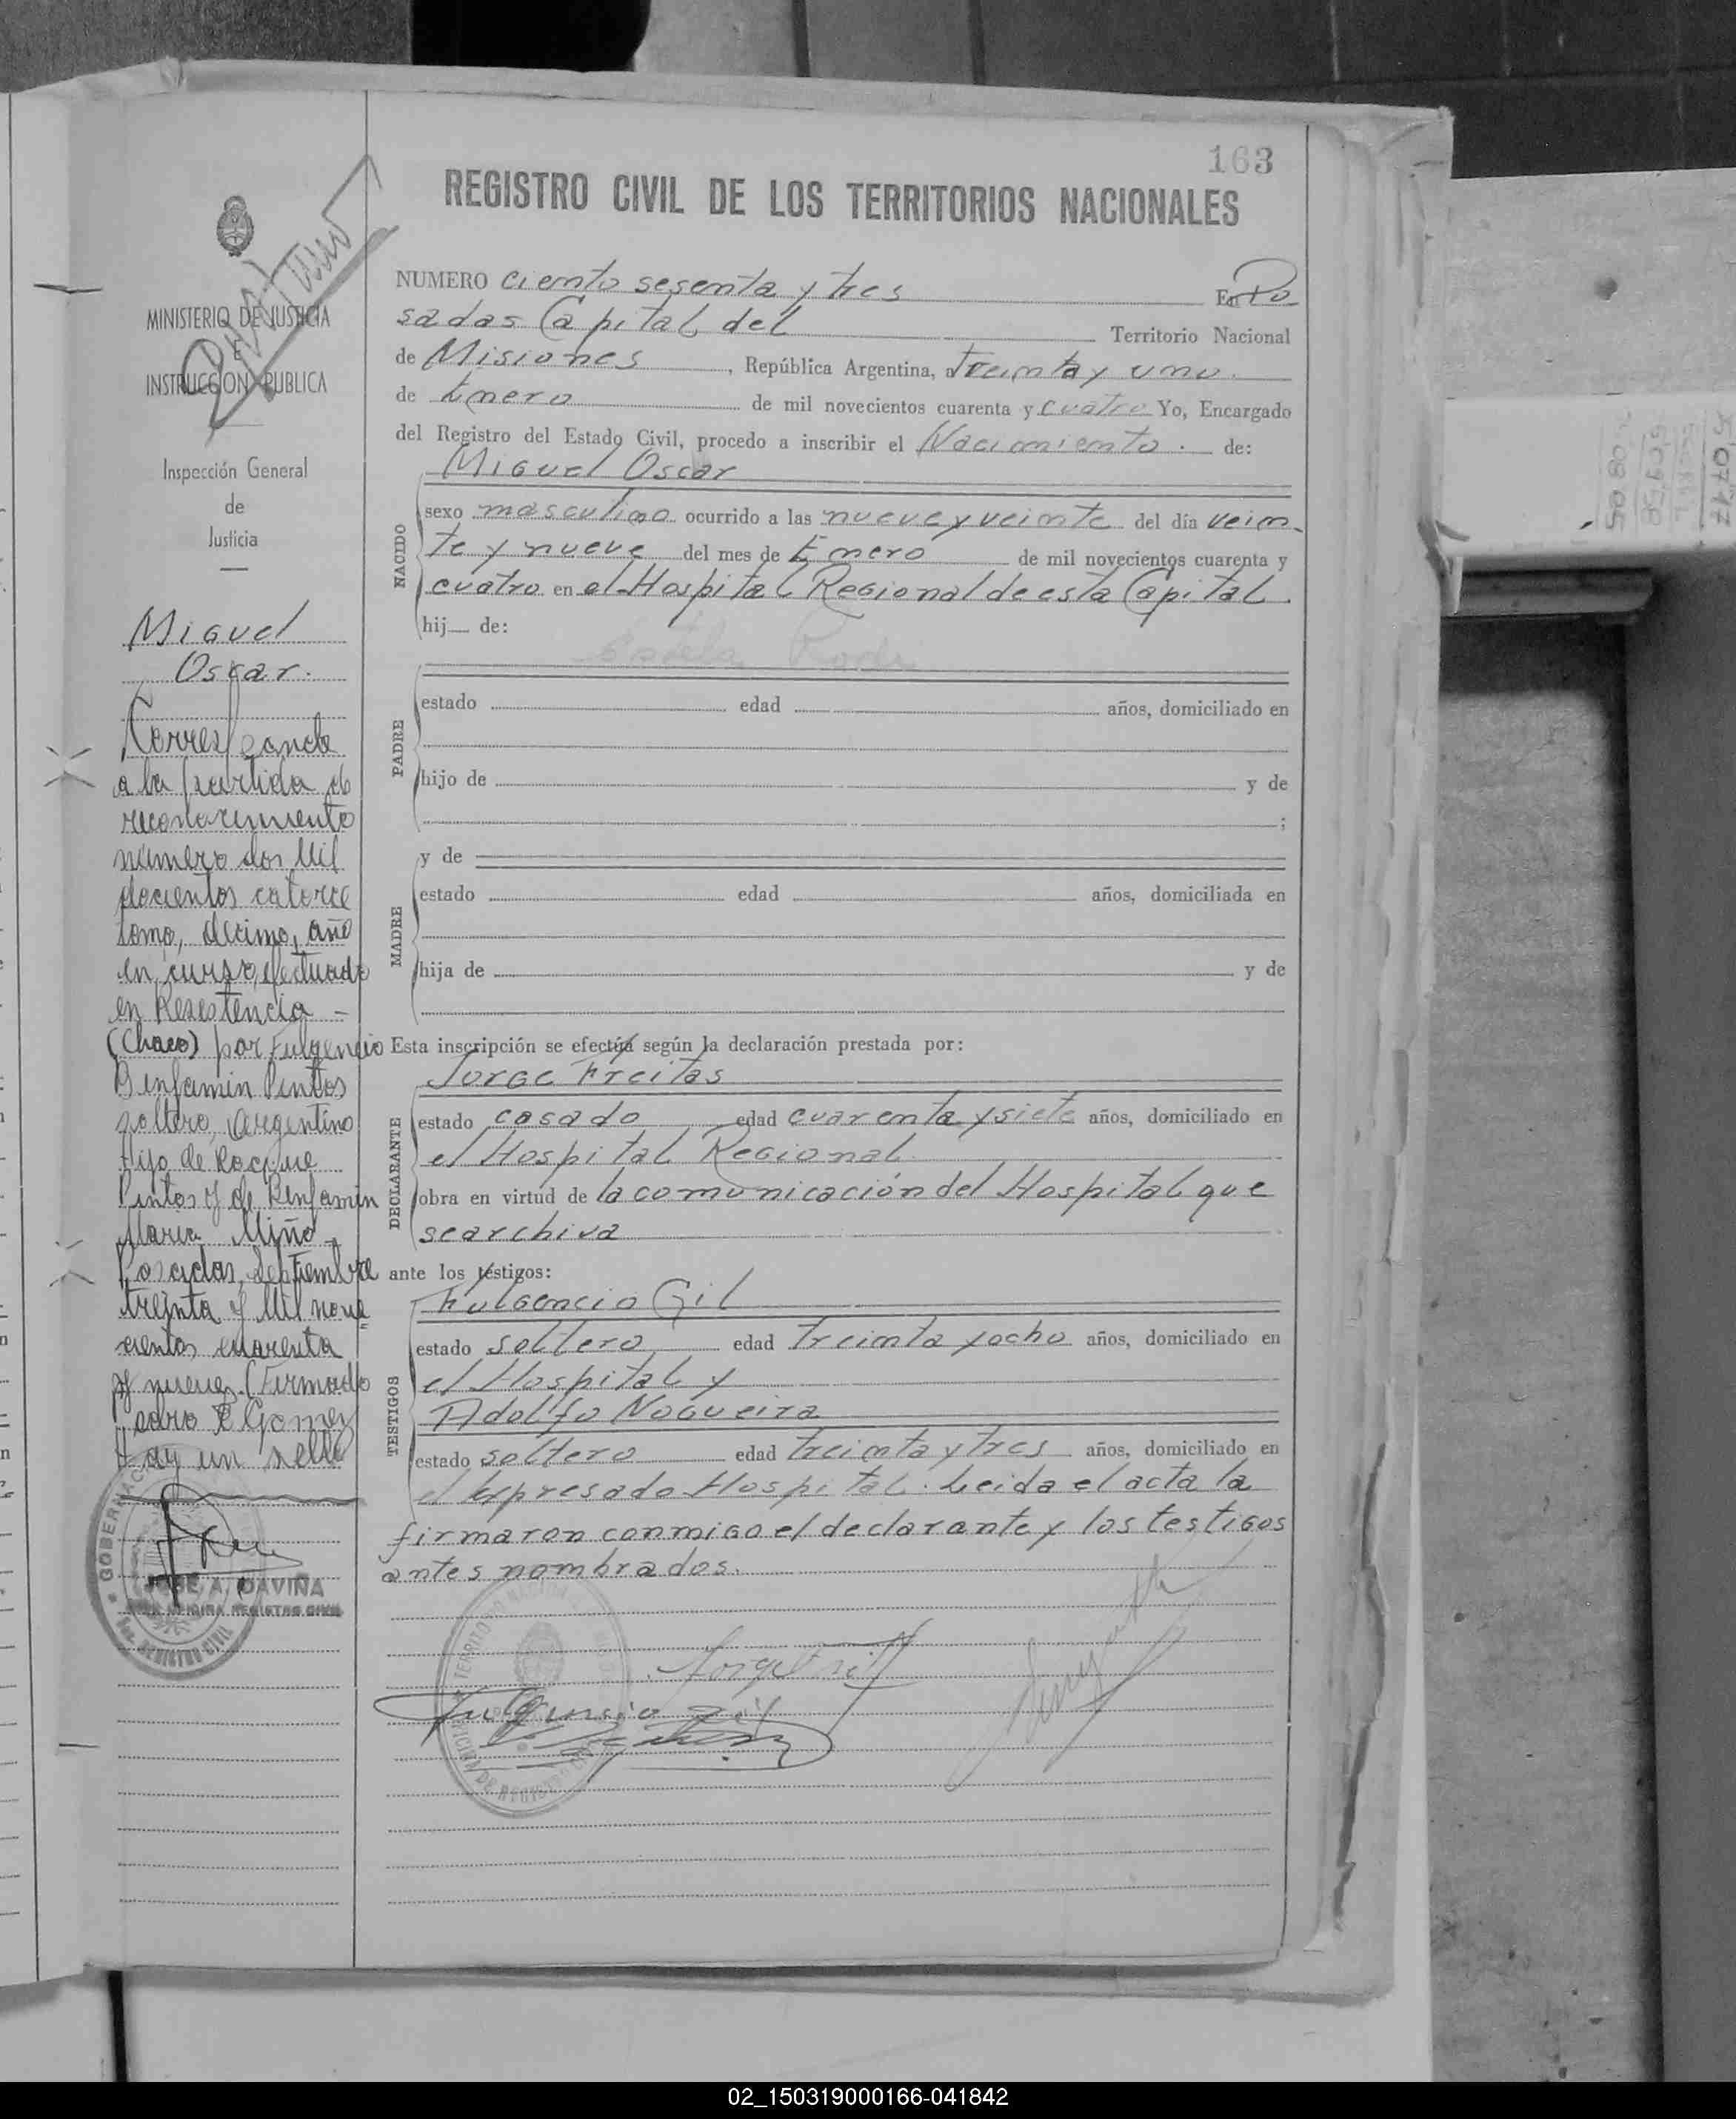 163
REGISTRO CIVIL DE LOS TERRITORIOS NACIONALES
MINISTERIO DE JUSTICIA
E
INSTRUCCION PUBLICA
Inspección General
de
Justicia
Miguel
Oscar.
Corresponde
a la partida de
reconocimiento
número dos Mil
docientos catorce
tomo, decimo, año
en curso, efectuado
en Resistencia -
(Chaco) por Fulgencio
Benjamin Pintos
soltero, Argentino
hijo de Roque
Pintos y de Benjamin
Maria Miño -
Posadas, Septiembre
treinta y Mil nove
cientos cuarenta
y nueve. (Firmado
Pedro R. Gomez
Hay un sello
GOBERNAC
JOSE A. DAVIÑA
REGISTRO CIVIL
NUMERO ciento sesenta y tres En Po
sadas Capital del Territorio Nacional
de Misiones, República Argentina, a treinta y uno.
de Enero de mil novecientos cuarenta y cuatro Yo, Encargado
del Registro del Estado Civil, procedo a inscribir el Nacimiento. de:
Miguel Oscar
NACIDO
sexo masculino ocurrido a las nueve y veinte del día vein-
te y nueve del mes de Enero de mil novecientos cuarenta y
cuatro en el Hospital Regional de esta Capital.
hij de:
PADRE
estado edad años, domiciliado en
hijo de y de
;
y de
MADRE
estado edad años, domiciliada en
hija de y de
Esta inscripción se efectúa según la declaración prestada por:
Jorge Freitas
DECLARANTE
estado casado edad cuarenta y siete años, domiciliado en
el Hospital Regional.
obra en virtud de la comunicación del Hospital que
se archiva
ante los testigos:
Fulgencio Gil
TESTIGOS
estado soltero edad treinta y ocho años, domiciliado en
el Hospital y
Adolfo Nogueira
estado soltero edad treinta y tres años, domiciliado en
el expresado Hospital. Leida el acta la
firmaron conmigo el declarante y los testigos
antes nombrados.
Fulgencio Gil
02_150319000166-041842